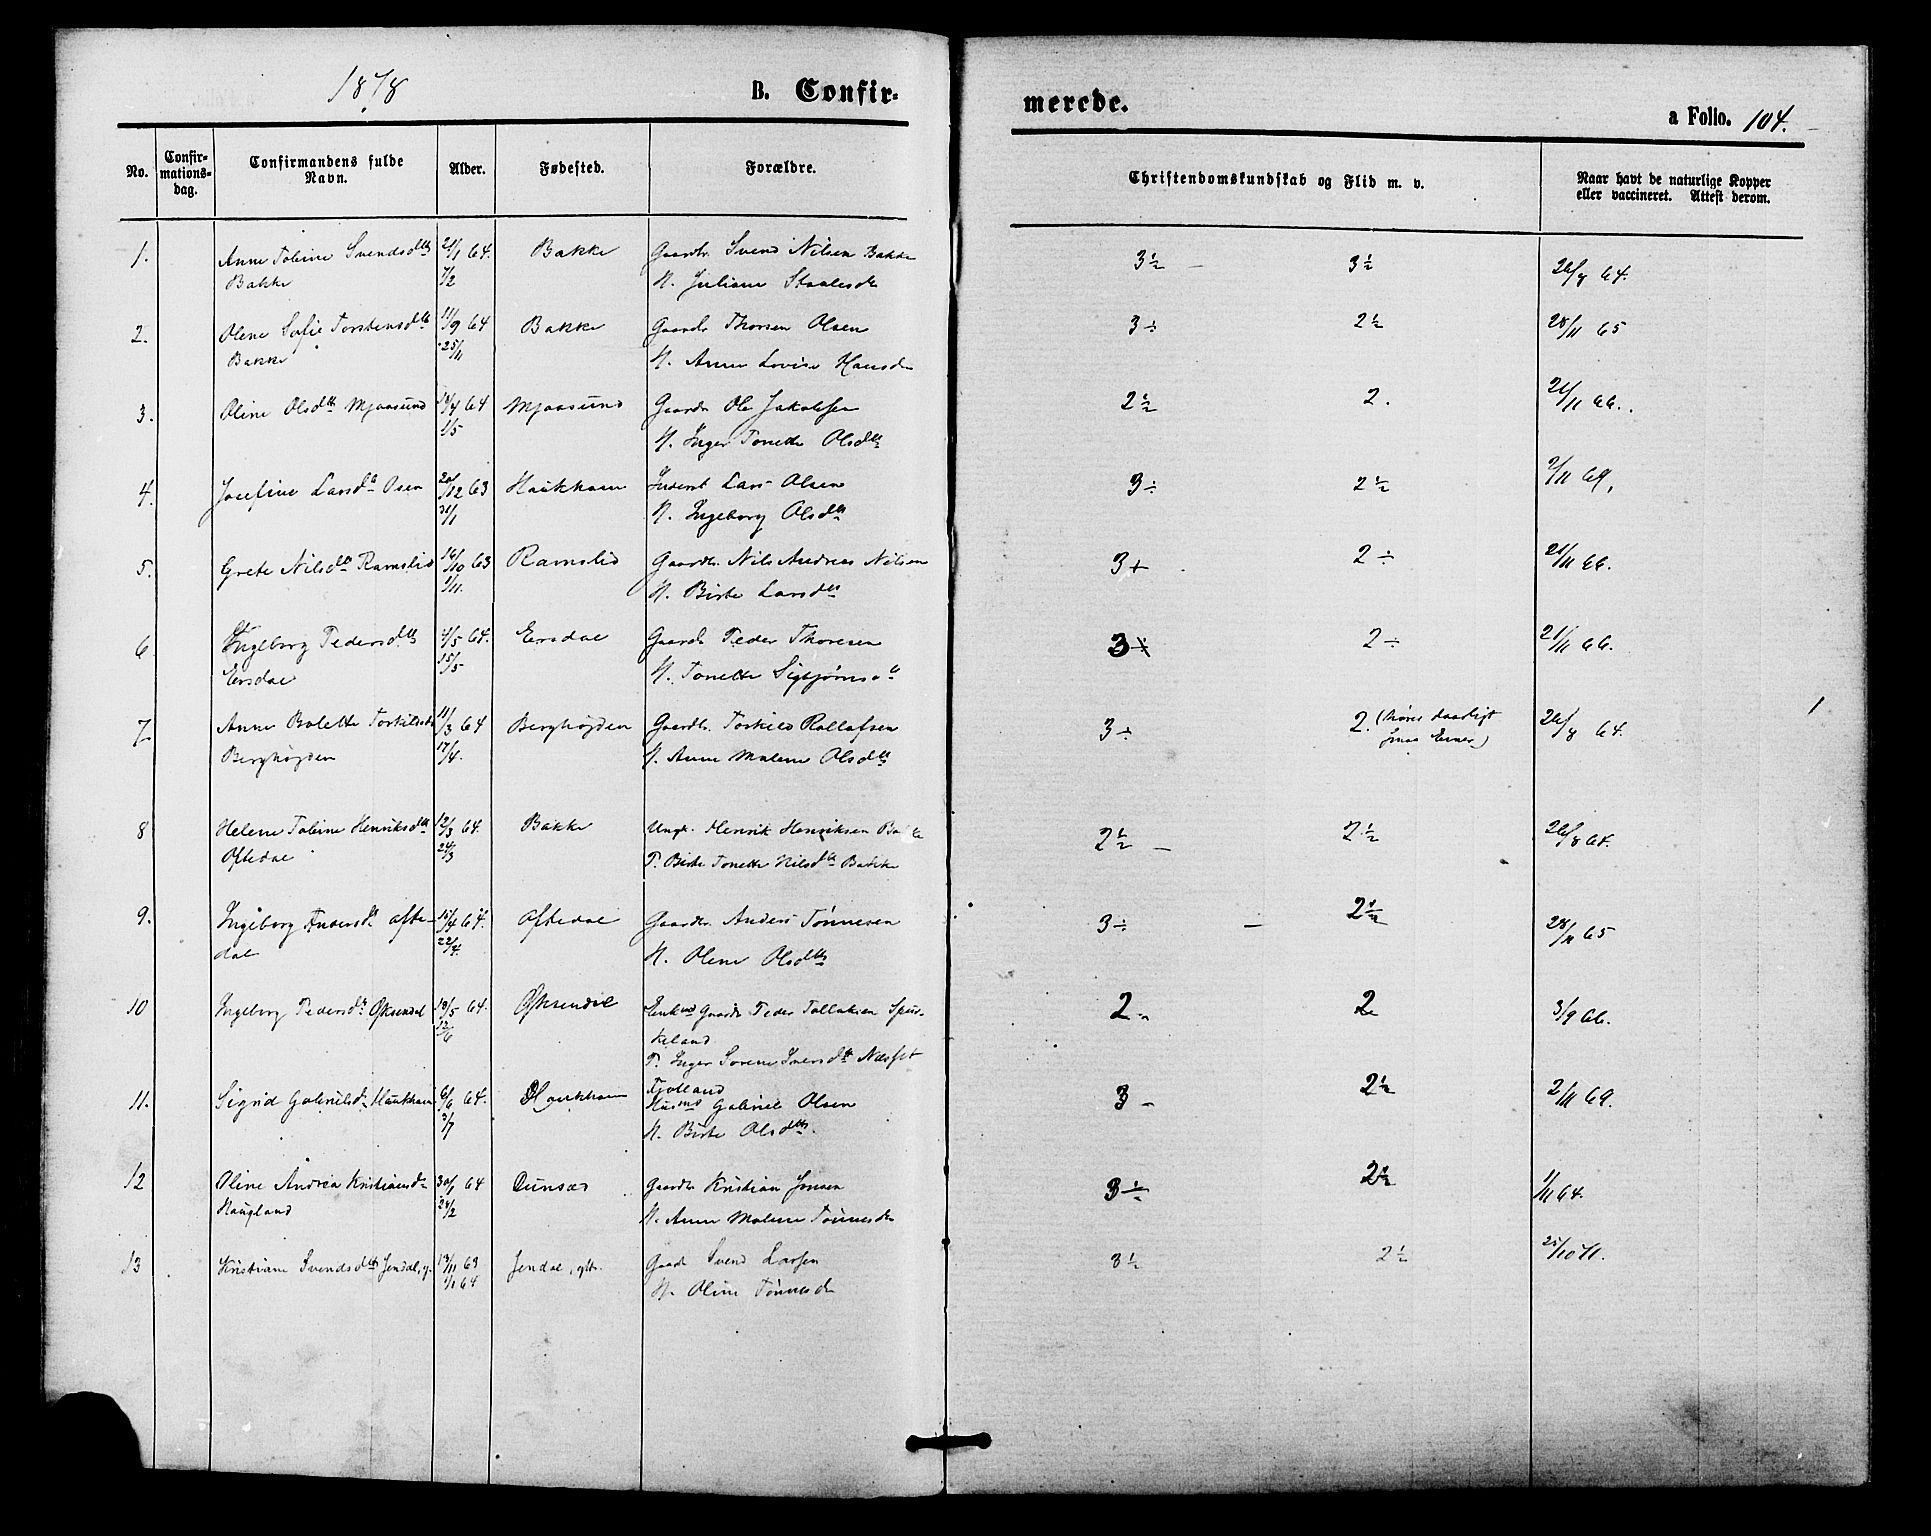 1878
B. Confir-
merede.
a Folio. 104.
No.
Confir-
mations-
dag.
Confirmandens fulde
Navn.
Alder.
Fødested.
Forældre.
Christendomskundskab og Flid m. v.
Naar havt de naturlige Kopper
eller vaccineret. Attest derom.
1. Anne Tobine Svendsdtr 21/1 64. Bakke Gaardbr. Svend Nilsen Bakke 3½ – 3½ 26/8 64.
Bakke 7/2 H. Juliane Staalesdtr
2. Olene Sofie Torstensdtr 11/9 64 Bakke Gaardbr Thorsen Olsen 3 ÷ 2½ 28/11 65
Bakke 25/11 H. Anne Lovise Hansdr
3. Oline Olsdtr Mjaasund 14/4 64 Mjaasund Gaardbr Ole Jakobsen 2½ 2. 21/11 66.
1/5 H. Inger Tonette Olsdtr
4. Josefine Larsdtr Osen 20/12 63 Haukhom Inderst Lars Olsen 3 ÷ 2½ 2/11 69.
31/1 H. Ingeborg Olsdtr
5. Grete Nilsdtr Ramslid 16/10 63 Ramslid Gaardbr. Nils Andreas Nilsen 3+ 2 ÷ 21/11 66.
1/11. H. Birte Larsdtr
6 Ingeborg Pedersdtr 4/5 64. Ersdal Gaardb Peder Thoresen 3 2 ÷ 21/11 66.
Ersdal 15/5 H. Tonette Sigbjørnsdtr
7. Anne Bolette Torkildsdr 11/3 64 Berghøjden Gaardbr. Torkild Rollafsen 3 ÷ 2. (høres daarligt 26/8 64.
Berghøjden 17/4. H. Anne Malene Olsdtr
8 Helene Tobine Henriksdtr 12/3 64. Bakke Ungk. Henrik Henriksen Bakke 2½ – 2½ 26/8 64.
Oftedal 24/3 P. Birte Tonette Nilsdtr Bakke
9. Ingeborg Andersdtr Ofte- 15/4 64. Oftedal Gaardbr. Anders Tønnesen 3 ÷ – 2½ 28/11 65
dal 22/4. H. Olene Olsdtr
10 Ingeborg Pedersdtr Øksendal 19/5 64. Øksendal Enkmd Gaardbr Peder Tollaksen Spir- 2 – 2 3/9 66.
12/6 keland
P. Inger Sorene Iversdtr Næsset
Fjotland
11. Sigrid Gabrielsdtr Haukhom 6/6 64. Haukhom Husmd Gabriel Olsen 3 – 2½ 2/11 69.
3/7 H. Birte Olsdtr.
12 Oline Andrea Kristiansdr 30/1 64 Dunsæd Gaardbr Kristian Jensen 3 ÷ 2½ 1/11 64.
Haugland 24/2 H. Anne Malene Tønnesdr
13 Kristiane Svendsdtr Jendal, g. 19/11 63 Jendal, gld. Gaardb Svend Larsen 3½ 2½ 25/10 71.
1/1 64 H. Oline Tønnesdr